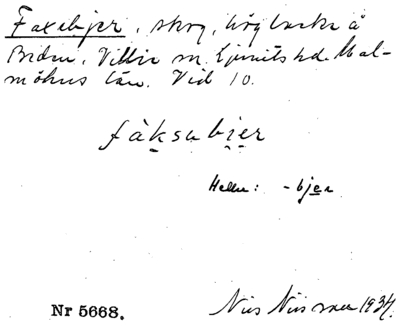 Faxebjer, skog, hög backe å
Villie sn. Ljunits hd. Mal-
möhus län. Vid 10.
fàksabi̯er
Heller: -bjer
Nr 5668.
Nils Nilsson 1934.